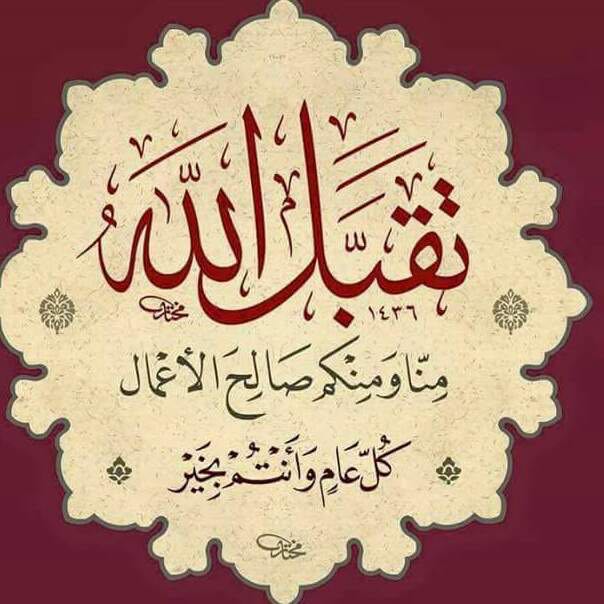 تقبل الله
١٤٣٦
مختار
منّا ومنكم صالح الأعمال
كلّ عام وأنتم بخير
مختار